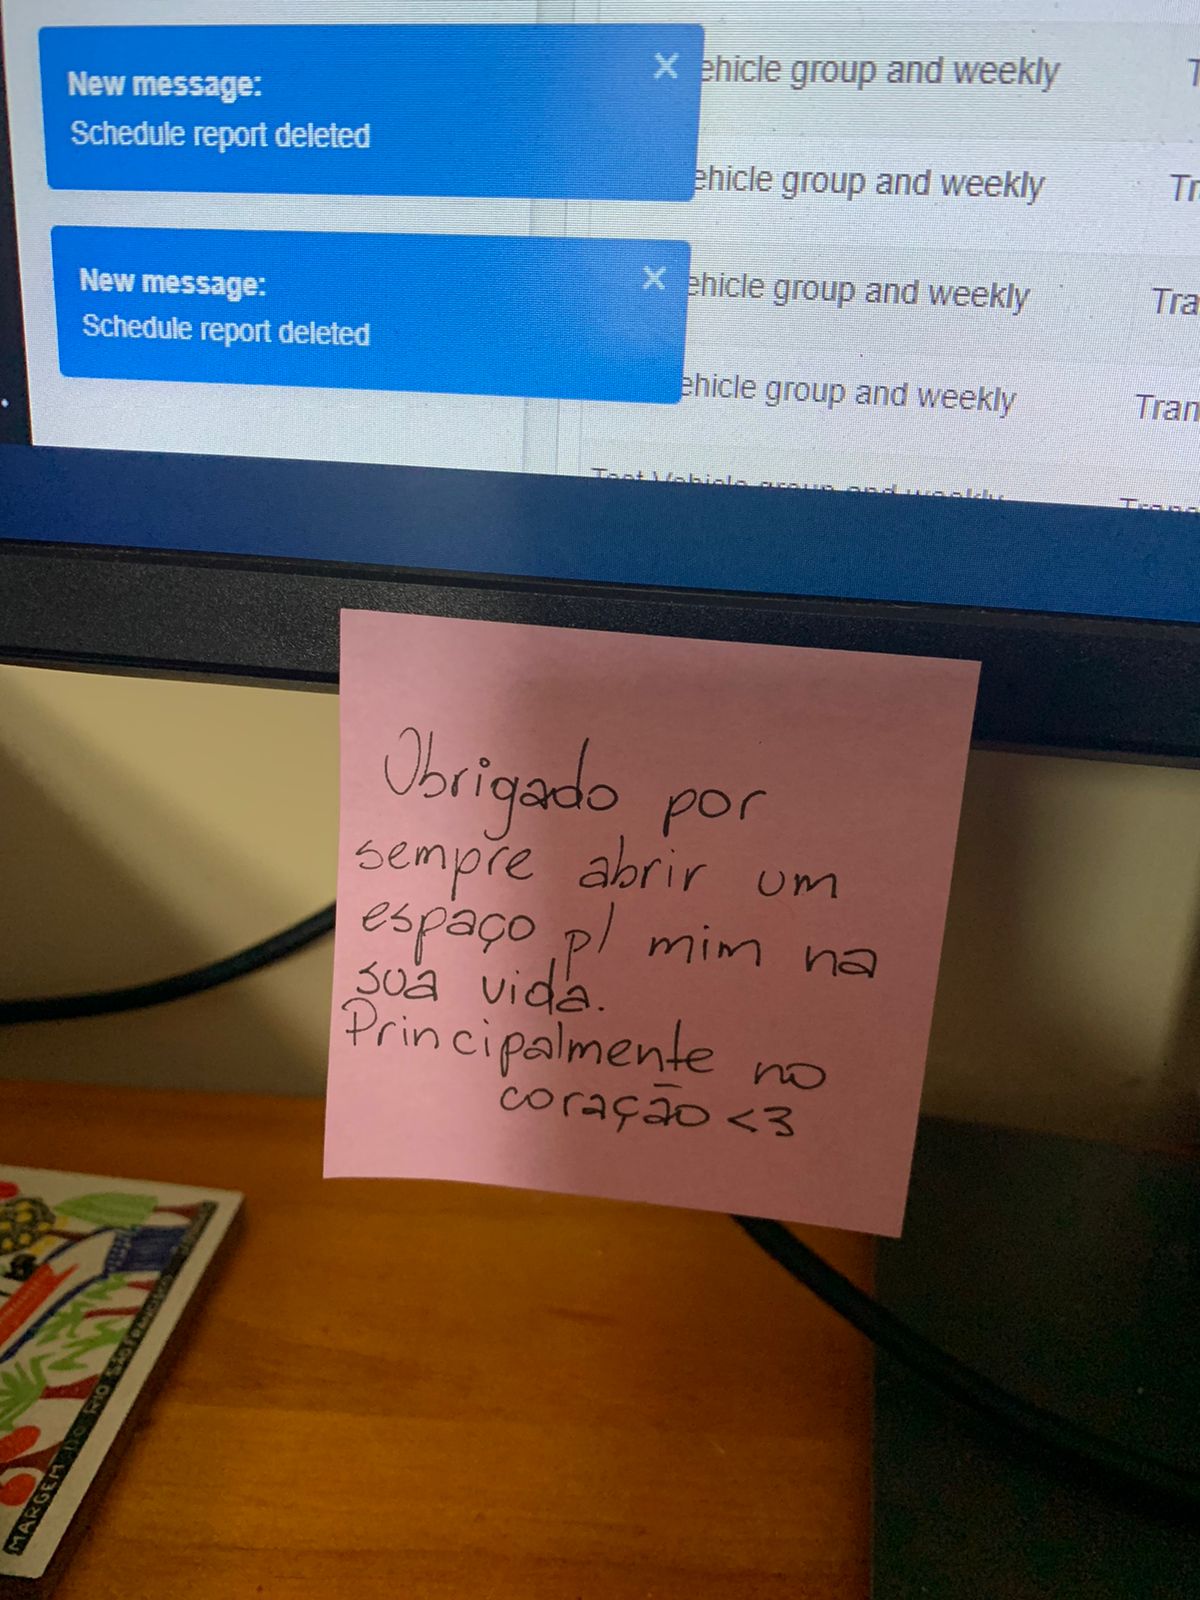 New message:
Schedule report deleted
New message:
Schedule report deleted
ehicle group and weekly
ehicle group and weekly
Tr
ehicle group and weekly
Tra
ehicle group and weekly
Tran
Test Vehicle group and weekly
Obrigado por
sempre abrir um
espaço p/ mim na
sua vida.
Principalmente no
coração <3
MARGEM DO RIO SÃO FRANCISCO